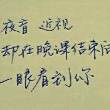 夜盲 近视
却在晚课结束后
一眼看到你